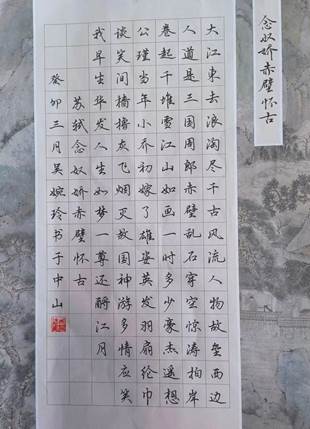 念奴娇赤壁怀古
大江東去浪淘尽千古风流人物故垒西边
人道是三国周郎赤壁乱石穿空惊涛拍岸
卷起千堆雪江山如画一时多少豪杰遥想
公瑾当年小乔初嫁了雄姿英发羽扇纶巾
谈笑间樯橹灰飞烟灭故国神游多情应笑
我早生华发人生如梦一尊还酹江月
苏轼念奴娇赤壁怀古
癸卯三月吴婉玲书于中山